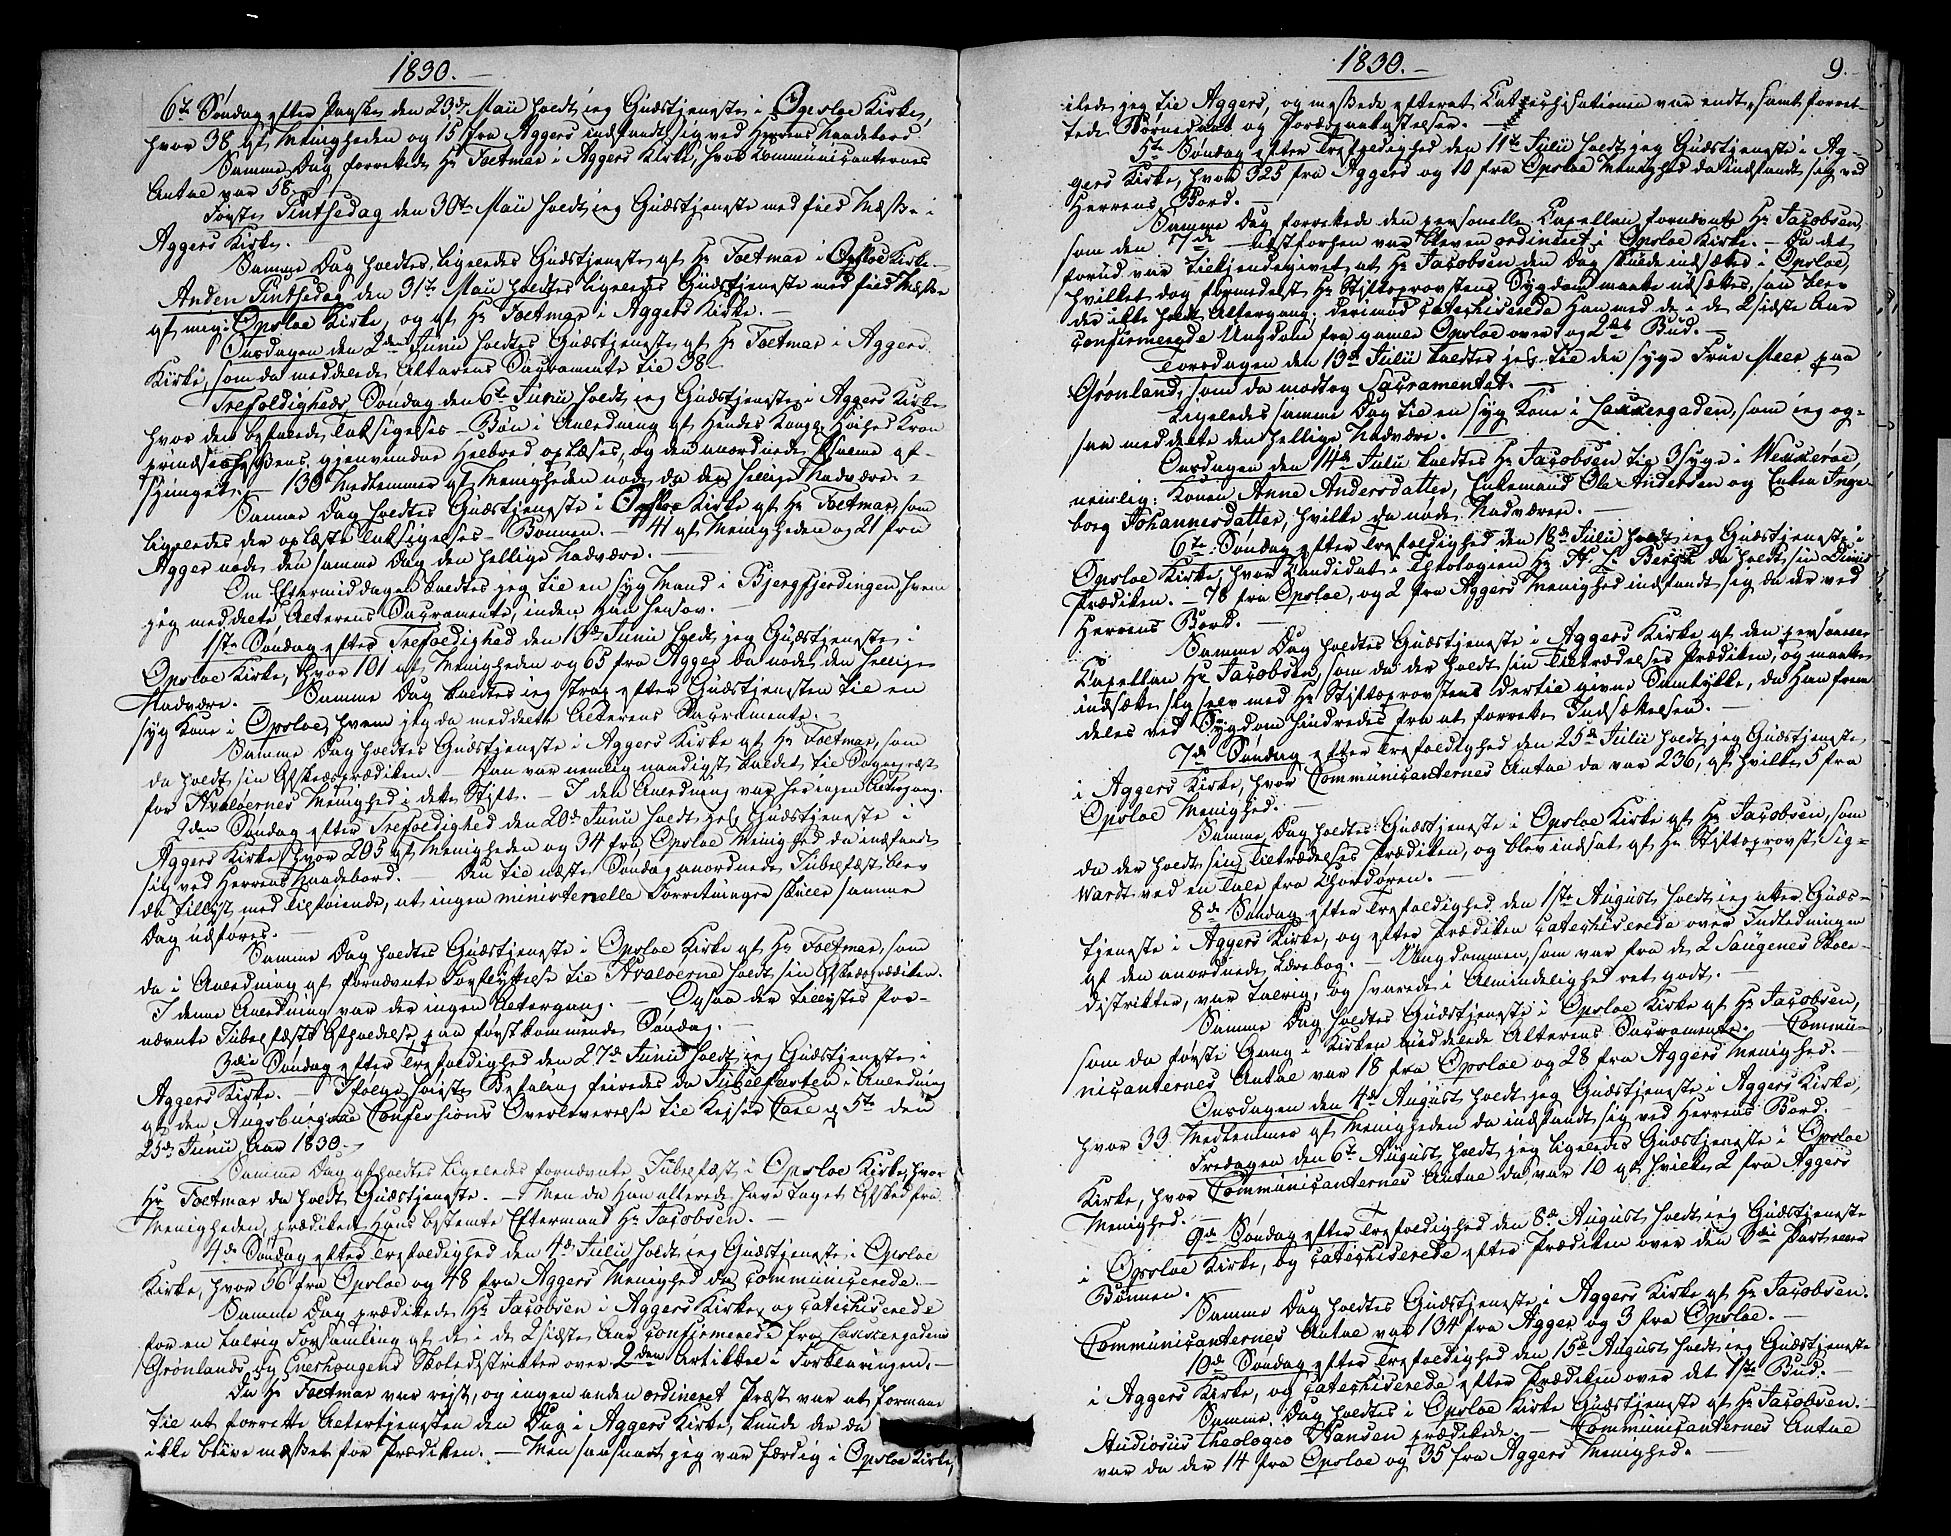 1830.
6te Søndag efter Paaske den 23de Maii holdt jeg Gudstjeneste i Opsloe Kirke,
hvor 38 af Menigheden og 15 fra Aggers indfandt sig ved Herrens Naadebord.
Samme Dag forrettede Hr Foetmar i Aggers Kirke, hvor Communicanternes
Antal var 58.
Første Pintsedag den 30te Maii holdt jeg Gudstjeneste med fuld Messe i
Aggers Kirke.
Samme Dag holdtes ligeledes Gudstjeneste af Hr Foetmar i Opsloe Kirke.
Anden Pintsedag den 31te Maii holdtes ligeledes Gudstjeneste med fuld Messe
af mig i Opsloe Kirke, og af Hr Foetmar i Aggers Kirke.
Onsdagen den 2den Junii holdtes Gudstjeneste af Hr Foetmar i Aggers
Kirke, som da meddelede Altarens Sacramente til 38.
Trefoldigheds Søndag den 6te Junii holdt jeg Gudstjeneste i Aggers Kirke
hvor den befalede Taksigelses-Bøn i Anledning af Hendes Kongl. Høihed Kron
prindsessens gjenvundne Helbred oplæstes, og den anordnede Psalme af-
sjunget. – 130 Medlemmer af Menigheden nøde da den hellige Nadvere.
Samme Dag holdtes Gudstjeneste i Opsloe Kirke af Hr Foetmar, som
ligeledes der oplæste Taksigelses-Bønnen. – 41 af Menigheden og 21 fra
Agger nøde den samme Dag den hellige Nadvere.
Om Eftermiddagen kaldtes jeg til en syg Mand i Bjergfjerdingen hvem
jeg meddelte Alterens Sacramente, inden Han hensov.
1ste Søndag efter Trefoldighed den 13de Junii holdt jeg Gudstjeneste i
Opsloe Kirke, hvor 101 af Menigheden og 65 fra Agger da nøde den hellige
Nadvere. – Samme Dag kaldtes jeg strax efter Gudstjenesten til en
syg Kone i Opsloe, hvem jeg da meddelte Alterens Sacramente.
Samme Dag holdtes Gudstjeneste i Aggers Kirke af Hr Foetmar, som
da holdt sin Afskedsprædiken. – Han var nemlig naadigst kaldet til Sognepræst
for Hvaløernes Menighed i dette Stift. – I den Anledning var her ingen Altergang.
2den Søndag efter Trefoldighed den 20de Junii holdt jeg Gudstjeneste i
Aggers Kirke, hvor 205 af Menigheden og 34 fra Opsloe Menighed da indfandt
sig ved Herrens Naadebord. – Den til næste Søndag anordnede Jubelfest blev
da tillyst med Tilføiende, at ingen ministerielle Forretninger skulle samme
Dag udføres.
Samme Dag holdtes Gudstjeneste i Opsloe Kirke af Hr Foetmar, som
da i Anledning af fornævnte Forflyttelse til Hvaløerne holdt sin Afskedsprædiken.
I denne Anledning var der ingen Altergang. – Ogsaa der tillystes for-
nævnte Jubelfests Afholdelse paa førstkommende Søndag.
3die Søndag efter Trefoldighed den 27de Junii holdt jeg Gudstjeneste i
Aggers Kirke. – Ifølge høieste Befaling feiredes da Jubelfesten i Anledning
af den Augsburgske Confessions Overleverelse til Keiser Carl d 5te den
25de Junii Aar 1830.
Samme Dag afholdtes ligeledes fornævnte Jubelfest i Opsloe Kirke, hvor
Hr Foetmar da holdt Gudstjeneste. – Men da Han allerede have taget Afsked fra
Menigheden, prædikede Hans bestemte Eftermand Hr Jacobsen.
4de Søndag efter Trefoldighed den 4de Julii holdt jeg Gudstjeneste i Opsloe
Kirke, hvor 56 fra Opsloe og 48 fra Aggers Menighed da communicerede.
Samme Dag prædikede Hr Jacobsen i Aggers Kirke, og catechiserede
for en talrig Forsamling af de i de 2 sidste Aar confirmerede fra Lakkergadens
Grønlands og Enerhougens Skoledistrikter over 2den Artikkel i Forklaringen.
Da Hr Foetmar var reist, og ingen anden ordineret Præst var at formaae
til at forrette Altertjenesten den Dag i Aggers Kirke, kunde der da
ikke blive messet for Prædiken. – Men saasnart jeg var færdig i Opsloe Kirke,
1830.
9.
ilede jeg til Aggers, og messede efterat Catechisationen var endt, samt forret-
tede Barnedaab og Jordspaakastelser.
5te Søndag efter Trefoldighed den 11te Julii holdt jeg Gudstjeneste i Ag-
gers Kirke, hvor 325 fra Aggers og 10 fra Opsloe Menighed da indfandt sig ved
Herrens Bord.
Samme Dag forrettede den personelle Capellan fornævnte Hr Jacobsen,
som den 7de næstforhen var bleven ordineret, i Opsloe Kirke. – Da det
forud var tilkjendegivet, at Hr Jacobsen den Dag skulde indsættes i Opsloe,
hvilket dog formedelst Hr Stiftsprovstens Sygdom maatte udsættes, saa blev
der ikke holdt Altergang; derimod catechiserede Han med de i de 2 sidste Aar
confirmerede Ungdom fra gamle Opsloe over og 2det Bud.
Torsdagen den 13de Julii kaldtes jeg til den syge Frue Meer paa
Grønland, som da modtog Sacramentet.
Ligeledes samme Dag til en syg Kone i Lakkergaden, som jeg og-
saa meddelte den hellige Nadvere.
Onsdagen den 14de Julii kaldtes Hr Jacobsen til 3 syge i Wækkerøe,
nemlig: Konen Anne Andersdatter, Enkemand Ole Andersen og Enken Inge-
borg Johannesdatter, hvilke da nøde Nadveren.
6te Søndag efter Trefoldighed den 18de Julii holdt jeg Gudstjeneste i
Opsloe Kirke, hvor Candidat i Theologien Hr H. L. Bergh da holdt sin Dimis
Prædiken. – 78 fra Opsloe, og 2 fra Aggers Menighed indfandt sig da der ved
Herrens Bord.
Samme Dag holdtes Gudstjeneste i Aggers Kirke af den personelle
Capellan Hr Jacobsen, som da der holdt sin Tiltrædelses Prædiken, og maatte
indsætte sig selv med Hr Stiftsprovstens dertil givne Samtykke, da Han frem
deles ved Sygdom hindredes fra at forrette Indsættelsen.
7de Søndag efter Trefoldighed den 25de Julii holdt jeg Gudstjeneste
i Aggers Kirke, hvor Communicanternes Antal da var 236, af hvilke 5 fra
Opsloe Menighed.
Samme Dag holdtes Gudstjeneste i Opsloe Kirke af Hr Jacobsen, som
da der holdt sin Tiltrædelses Prædiken, og blev indsat af Hr Stiftsprovst Sig-
wardt ved en Tale fra Chordøren.
8de Søndag efter Trefoldighed den 1ste August holdt jeg atter Guds-
tjeneste i Aggers Kirke, og efter Prædiken catechiserede over Indledningen
af den anordnede Lærebog. – Ungdommen, som var fra de 2 Saugenes Skole-
distrikter, var talrig, og svarede i Almindelighed ret godt.
Samme Dag holdtes Gudstjeneste i Opsloe Kirke af Hr Jacobsen,
som da første Gang i Kirken uddelede Alterens Sacramente. – Commu-
nicanternes Antal var 18 fra Opsloe og 28 fra Aggers Menighed.
Onsdagen den 4de August holdt jeg Gudstjeneste i Aggers Kirke,
hvor 33 Medlemmer af Menigheden da indfandt sig ved Herrens Bord.
Fredagen den 6te August holdt jeg ligeledes Gudstjeneste i Opsloe
Kirke, hvor Communicanternes Antal da var 10 af hvilke 2 fra Aggers
Menighed.
9de Søndag efter Trefoldighed den 8de August holdt jeg Gudstjeneste
i Opsloe Kirke, og catechiserede efter Prædiken over den 3die Part eller
Bønnen.
Samme Dag holdtes Gudstjeneste i Aggers Kirke af Hr Jacobsen.
Communicanternes Antal var 134 fra Agger og 3 fra Opsloe.
10de Søndag efter Trefoldighed den 15de August holdt jeg Gudstjeneste
i Aggers Kirke, og catechiserede efter Prædiken over det 1ste Bud.
Samme Dag holdtes i Opsloe Kirke Gudstjeneste af Hr Jacobsen.
Studiosus theologiæ Hansen prædikede. – Communicanternes Antal
var da der 14 fra Opsloe og 35 fra Aggers Menighed.